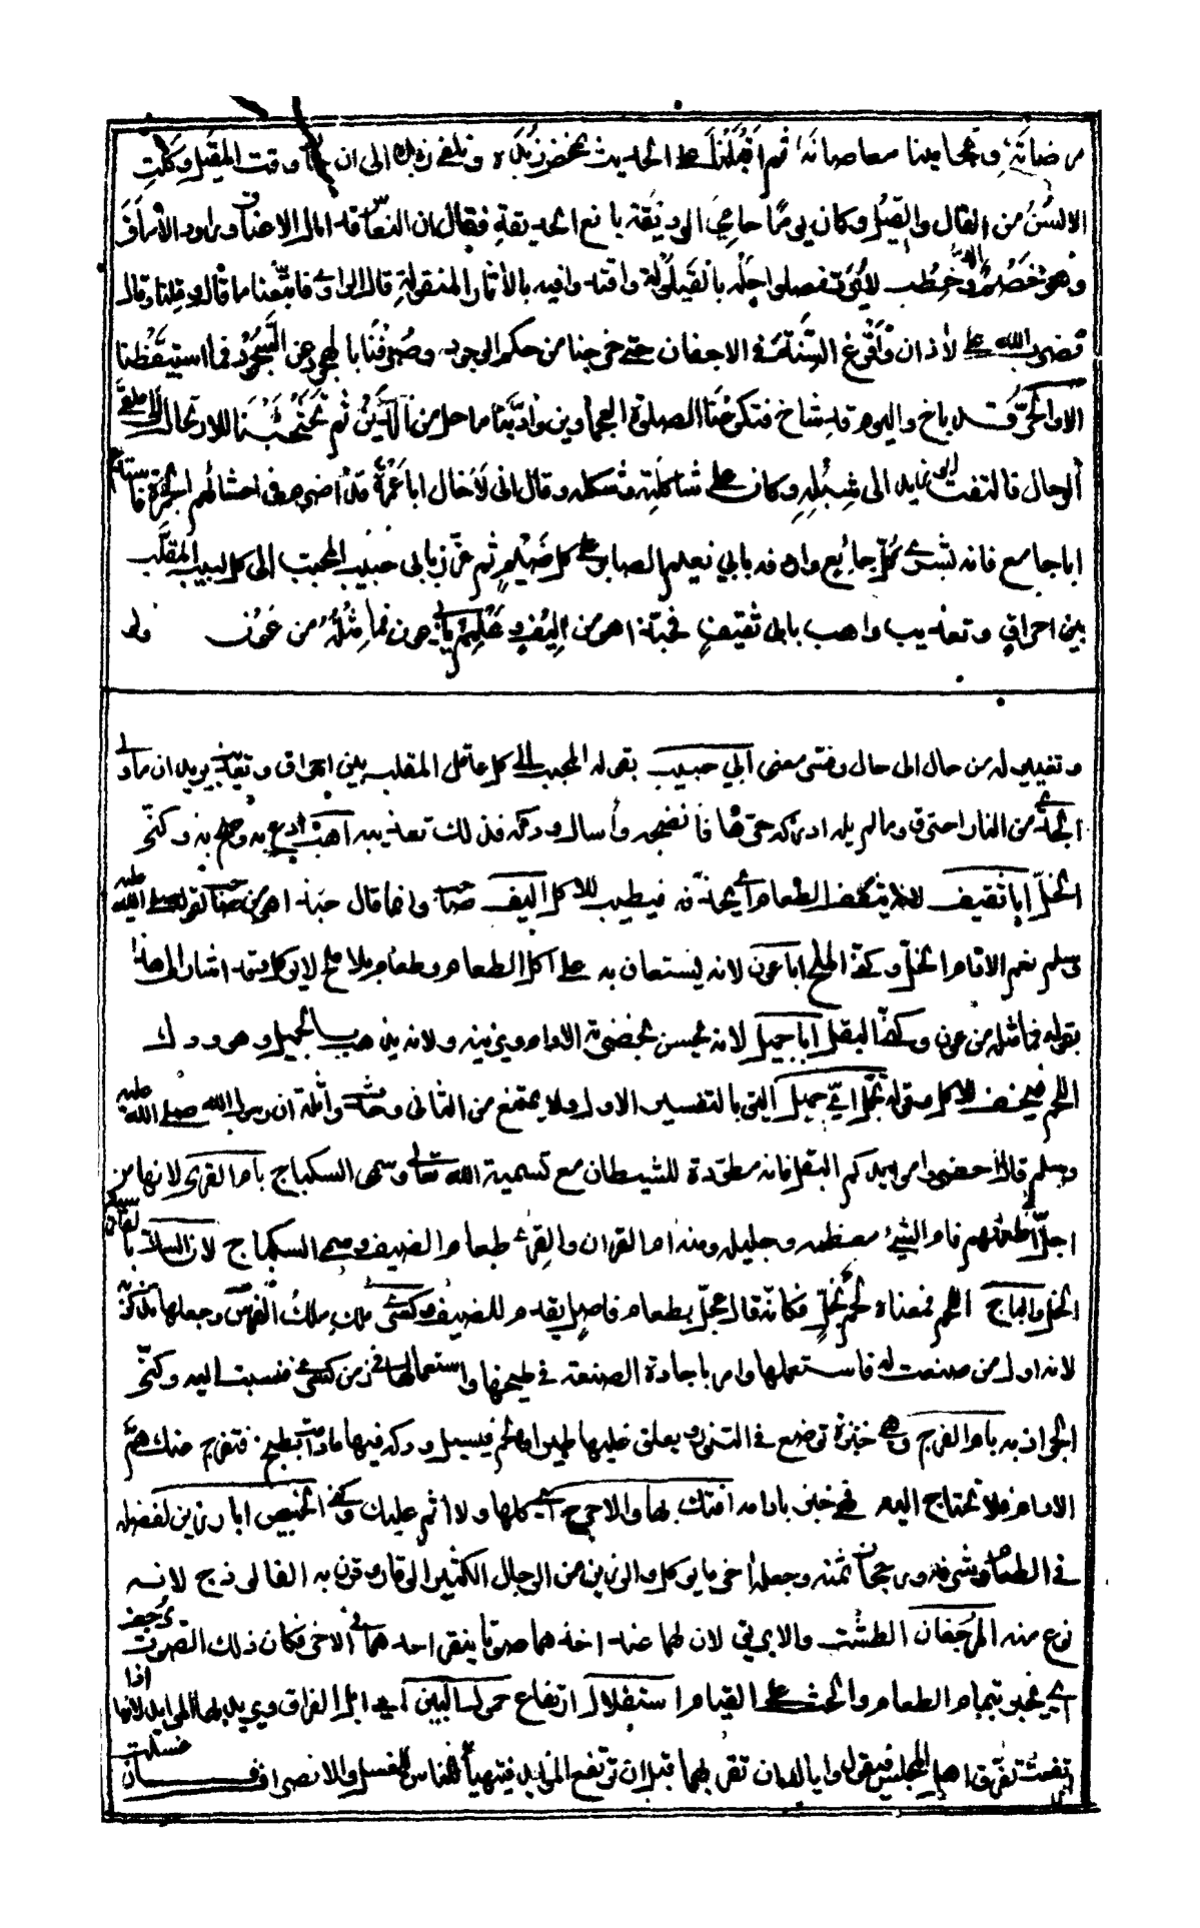 مرضاته وتحامينا معاصاته ثم اقبلنا على الحديث نمخض زبده ونلغي زبده الى ان حان وقت المقيل وكلت
الالسن من القال والقيل وكان يوما حامي الوديقة يانع الحديقة فقال ان النعاس قد امال الاعناق وراود الآماق
وهو خصم الد وخطب لا يرد فصلوا حبله بالقيلولة واقتدوا فيه بالآثار المنقولة قال الراوي فاتبعنا ما قال وقلنا وقال
فضرب الله على الأذان وافرغ السنة في الاجفان حتى خرجنا من حكم الوجود وصرفنا بالهجود عن السجود فما استيقظنا
الا والحر قد باخ واليوم قد شاخ فتكرعنا لصلوة العجماوين وادينا ما حل من الدين ثم تحثحثنا للارتحال الى ملقى
الرحال فالتفت ابو زيد الى شبله وكان على شاكلته وشكله وقال اني لاخال ابا عمرة قد اضرم في احشائهم الجمرة فاستدع
ابا جامع فانه بشرى كل جائع واردفه بابي نعيم الصابر على كل ضيم ثم عزز بابي حبيب المحبب الى كل لبيب المقلب
بين احراق وتعذيب واهب بابي ثقيف فحبذا هو من اليف وهلم بابي عون فما مثله من عون ولو
وتغييره له من حال الى حال وفسر معنى ابي حبيب بقوله المحبب الى كل عاقل المقلب بين احراق وتعذيب يريد ان ما ولي
الجدي من النار احترق وما لم يله ادركه حرها فانضجه وأسال ودكه فذلك تعذيبه اهب ادع به وصح به وكنى
الخل ابا ثقيف لانه يثقف الطعام اي يحذقه فيطيب للاكل اليف صاحب وانما قال حبذا هو من صاحب لقوله صلى الله عليه
وسلم نعم الادام الخل وكنى الملح ابا عون لانه يستعان به على اكل الطعام وطعام بلا ملح لا يوكل وقد اشار الى هذا
بقوله فما مثله من عون وكنى البقل ابا جميل لانه يحسن بخضرته الادام ويزينه ولانه يذهب الجميل وهو ودك
اللحم فيخف للاكل وقوله تجمل اي جميل اليق بالتفسير الاول ولا يمتنع من الثاني واثلة ان رسول الله صلى الله عليه
وسلم قال احضروا موائدكم البقل فانه مطردة للشيطان مع تسمية الله تعالى وسمى السكباج بام القرى لانها من
اجل اطعمتهم فام الشيء معظمه وجليله ومنه ام القران والقرى طعام الضيف وسمى السكباج لان السك بالفارسية
الخل والباج اللحم فمعناه لحم بخل فكانه قال عجل بطعام فاضل يقدم للضيف وكسرى ملك ملوك الفرس وجعلها تذكره
لانه اول من صنعت له فاستعملها وامر باجادة الصنعة في طبخها واستعمالها في زمن كسرى فنسبت اليه وكنى
الجواذبه بام الفرج وهي خبزة توضع في التنور ويعلق عليها طير او لحم فيسيل ودكه فيها ما دامت تطبخ فتفرج عنك هم
الادام فلا تحتاج اليه فهي خبز بادامه افتك بها ولا حرج اي كلها ولا اثم عليك وكنى الخبيص ابا رزين لفضله
في الطعام وشرفه ورجحان ثمنه وجعله اخر ما يوكل والرزين من الرجال الكثير الوقار وقرن به الفالوذج لانه
نوع منه المرجفان الطشت والابريق لان لهما عند اخذهما صوتا ينقر احدهما في الاخر فكان ذلك الصوت يرجف
اي يخبر بتمام الطعام والحث على القيام استقلال ارتفاع حمول البين اي ابل الفراق ويريد بها الموايد لانها اذا
رفعت تفرق اهل المجلس فيقول واياك ان تقربهما قبل ان ترفع الموايد فيتهيأ الناس للغسل والانصراف فان غسلت